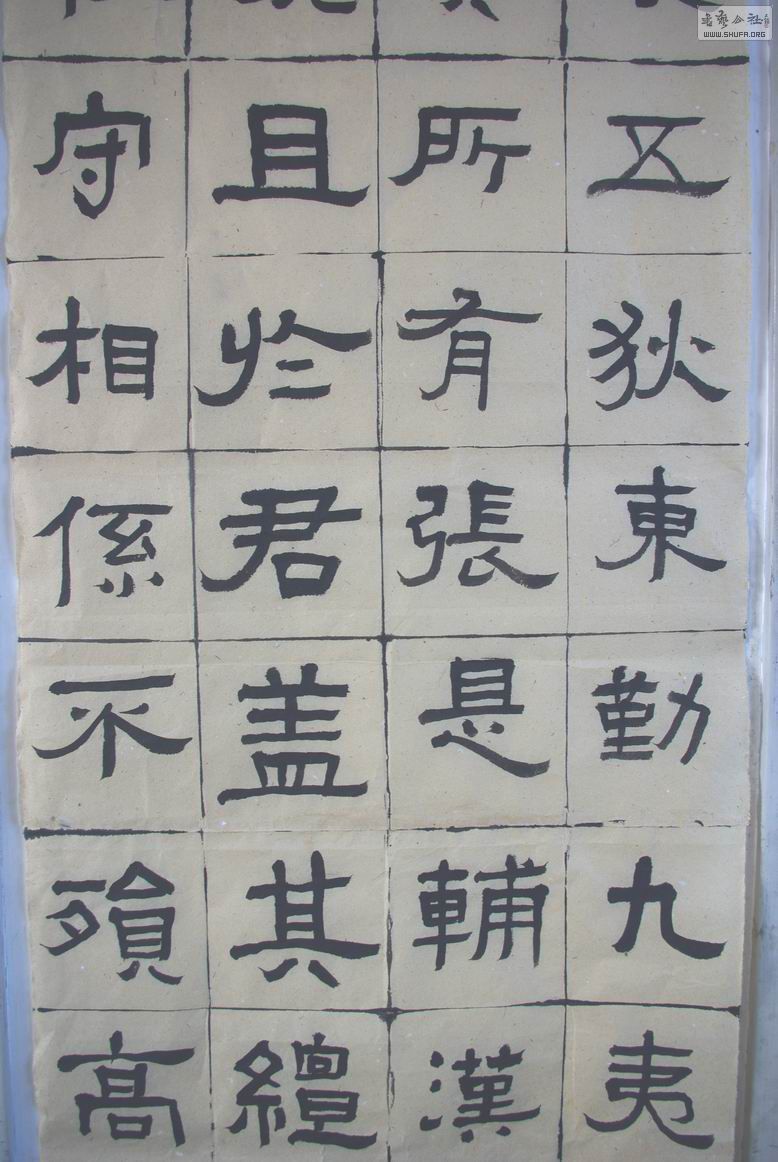 五狄東勤九夷
所有張是輔漢
且於君盖其繵
守相係不殞高
WWW.SHUFA.ORG